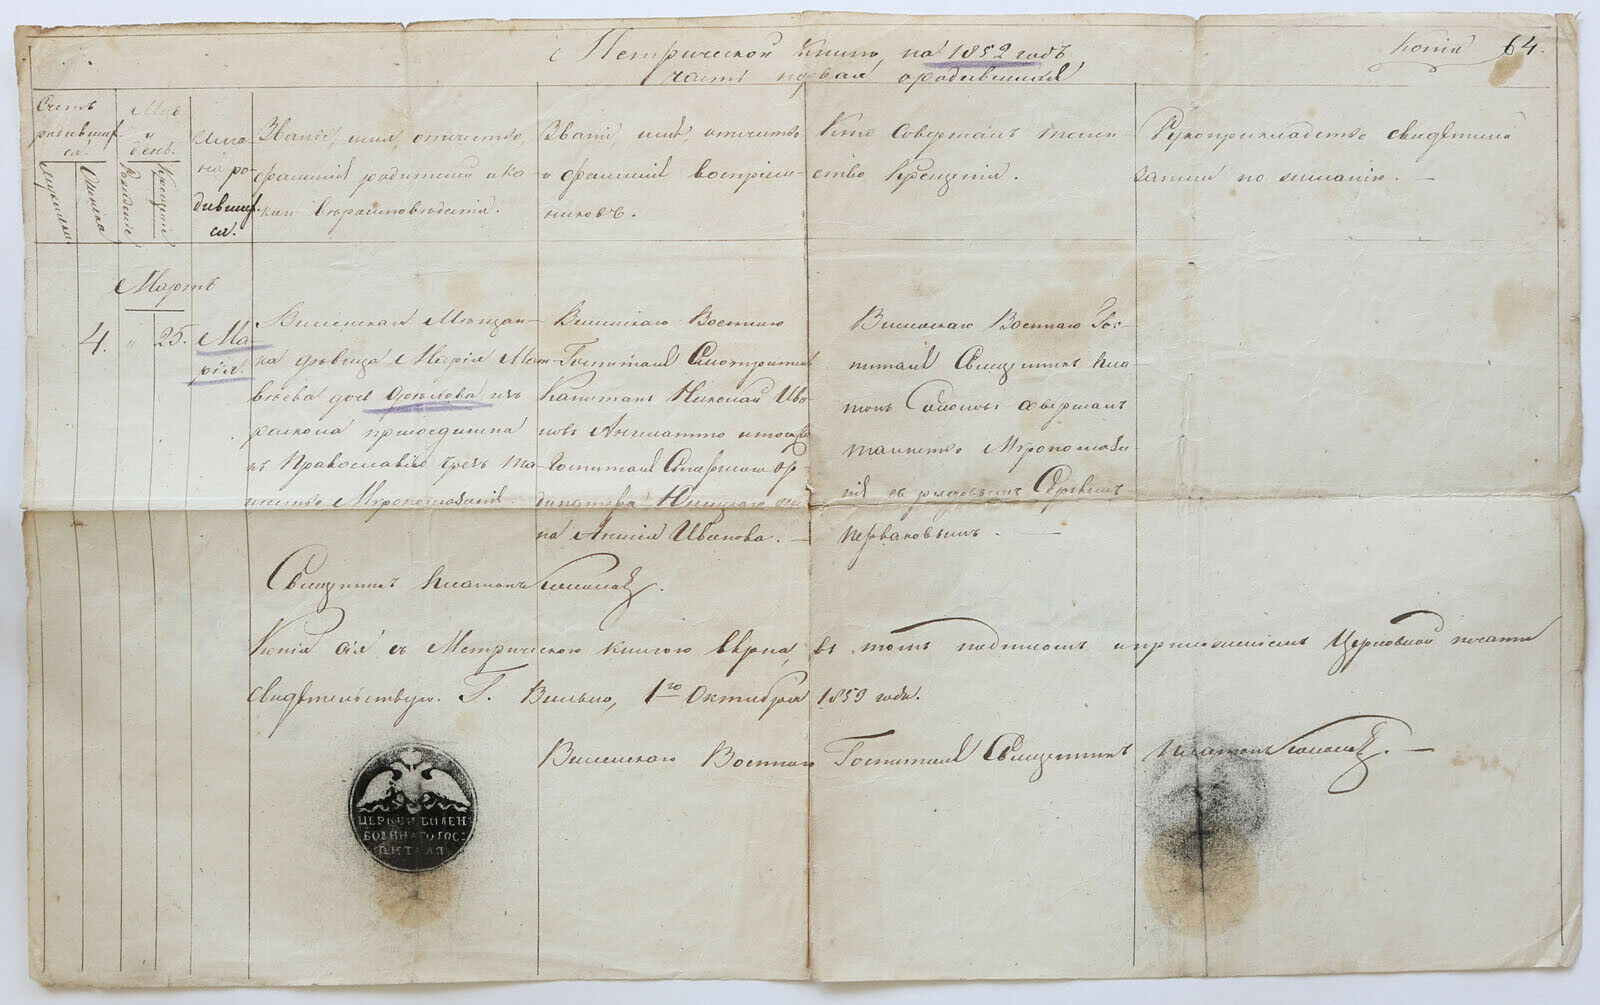 Метрической книги, на 1852 годъ
часть первая о родившихся
Копія 64.
Счетъ
родивших
ся.
Мужеска
Женска
Мцъ
и
день.
Рожденіе
Крещеніе
Имя
на ро-
дивших
ся.
Званіе, имя, отчество,
фамиліи родителей и ка-
каго вѣроисповѣданія.
Званіе, имя, отчество
и фамилія воспріем-
никовъ.
Кто совершалъ таин-
ство Крещенія.
Рукоприкладство свидѣтелей
записи по желанію. —
Мартъ
4.
"
25.
Ма
рія.
Виленская Мѣщан-
ка дѣвица Марія Мат-
вѣева дочь изъ
раскола присоединена
къ Православію чрезъ та-
инство Мѵропомазанія.
Виленскаго Военнаго
Госпиталя Смотритель
Капитанъ Николай Ива-
новъ и тогоже
Госпиталя Старшаго ор-
динатора же-
на Ивановна. —
Виленскаго Военнаго Гос-
питаля Священникъ Пла-
тонъ совершалъ
таинство Мѵропомаза-
нія съ рядовымъ Сергѣемъ
Перваковымъ. —
Священникъ Платонъ
Копія сія съ Метрическою книгою вѣрна, въ томъ подписомъ и приложеніемъ Церковной печати
свидѣтельствую. Г. Вильно, 1го Октября 1859 года.
Виленскаго Военнаго Госпиталя Священникъ Платонъ
ЦЕРКВИ ВИЛЕН:
ВОЕННАГО ГОС=
ПИТАЛЯ